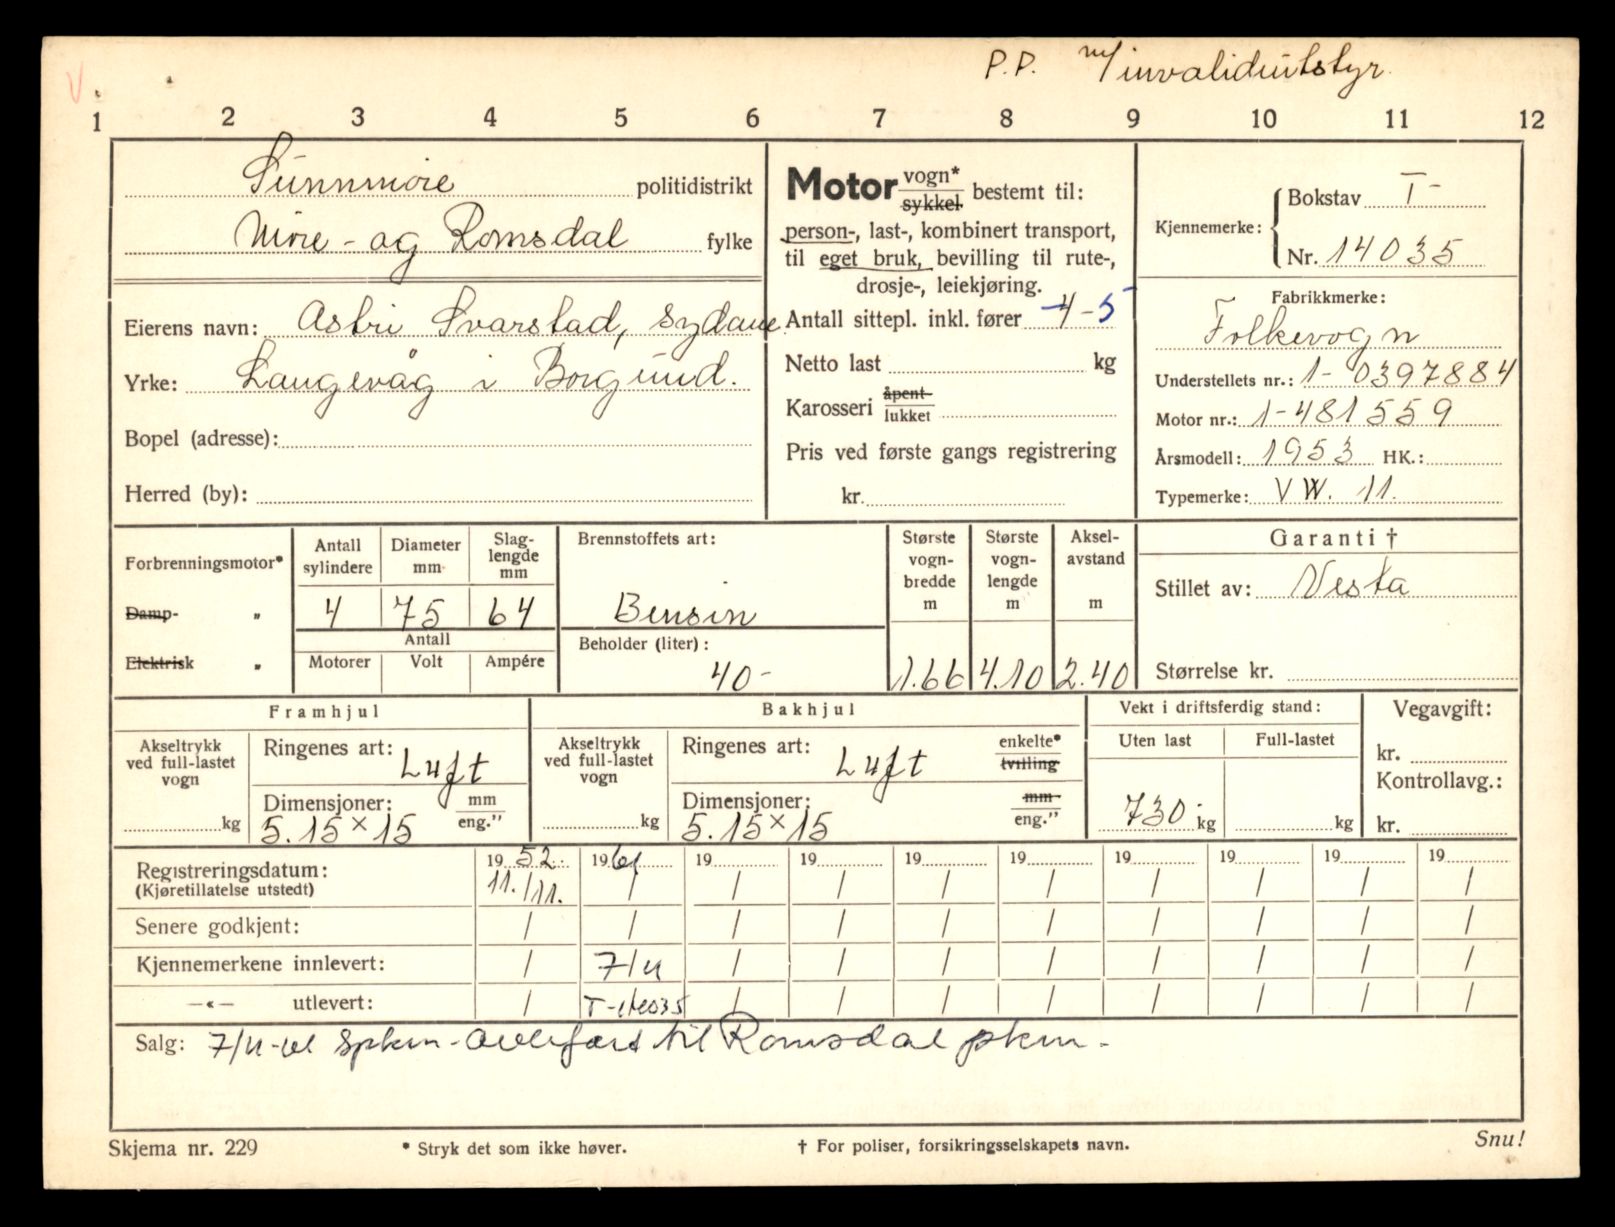 P.P. m/invalidutstyr.
1 2 3 4 5 6 7 8 9 10 11 12
Sunnmøre politidistrikt
Møre - og Romsdal fylke
Eierens navn: Astri Svarstad, Sydame
Yrke: Langevåg i Borgund.
Bopel (adresse):
Herred (by):
Motor vogn* sykkel bestemt til:
person-, last-, kombinert transport,
til eget bruk, bevilling til rute-,
drosje-, leiekjøring.
Antall sittepl. inkl. fører 4-5
Netto last kg
Karosseri åpent lukket
Pris ved første gangs registrering
kr.
Kjennemerke: Bokstav T-
Nr. 14035
Fabrikkmerke:
Folkevogn
Understellets nr.: 1-0397884
Motor nr.: 1-481559
Årsmodell: 1953 HK.:
Typemerke: V W. 11.
Forbrenningsmotor*
Damp- „
Elektrisk „
Antall sylindere Diameter mm Slaglengde mm
4 75 64
Antall
Motorer Volt Ampére
Brennstoffets art:
Bensin
Beholder (liter):
40-
Største vognbredde m
1.66
Største vognlengde m
4.10
Akselavstand m
2.40
Garanti †
Stillet av: Vesta
Størrelse kr.
Framhjul
Akseltrykk ved full-lastet vogn
kg
Ringenes art: Luft
Dimensjoner: mm eng.”
5.15×15
Bakhjul
Akseltrykk ved full-lastet vogn
kg
Ringenes art: Luft enkelte* tvilling
Dimensjoner: mm eng.”
5.15×15
Vekt i driftsferdig stand:
Uten last Full-lastet
730 kg kg
Vegavgift:
kr.
Kontrollavg.:
kr.
Registreringsdatum: 1952 1961 19 19 19 19 19 19 19 19
(Kjøretillatelse utstedt) 11./11. / / / / / / / / /
Senere godkjent: / / / / / / / / / /
Kjennemerkene innlevert: / 7/4 / / / / / / / /
—«— utlevert: / T-14035 / / / / / / / /
Salg: 7/4-61 Spkm- Overført til Romsdal pkm-
Skjema nr. 229 * Stryk det som ikke høver. † For poliser, forsikringsselskapets navn. Snu!